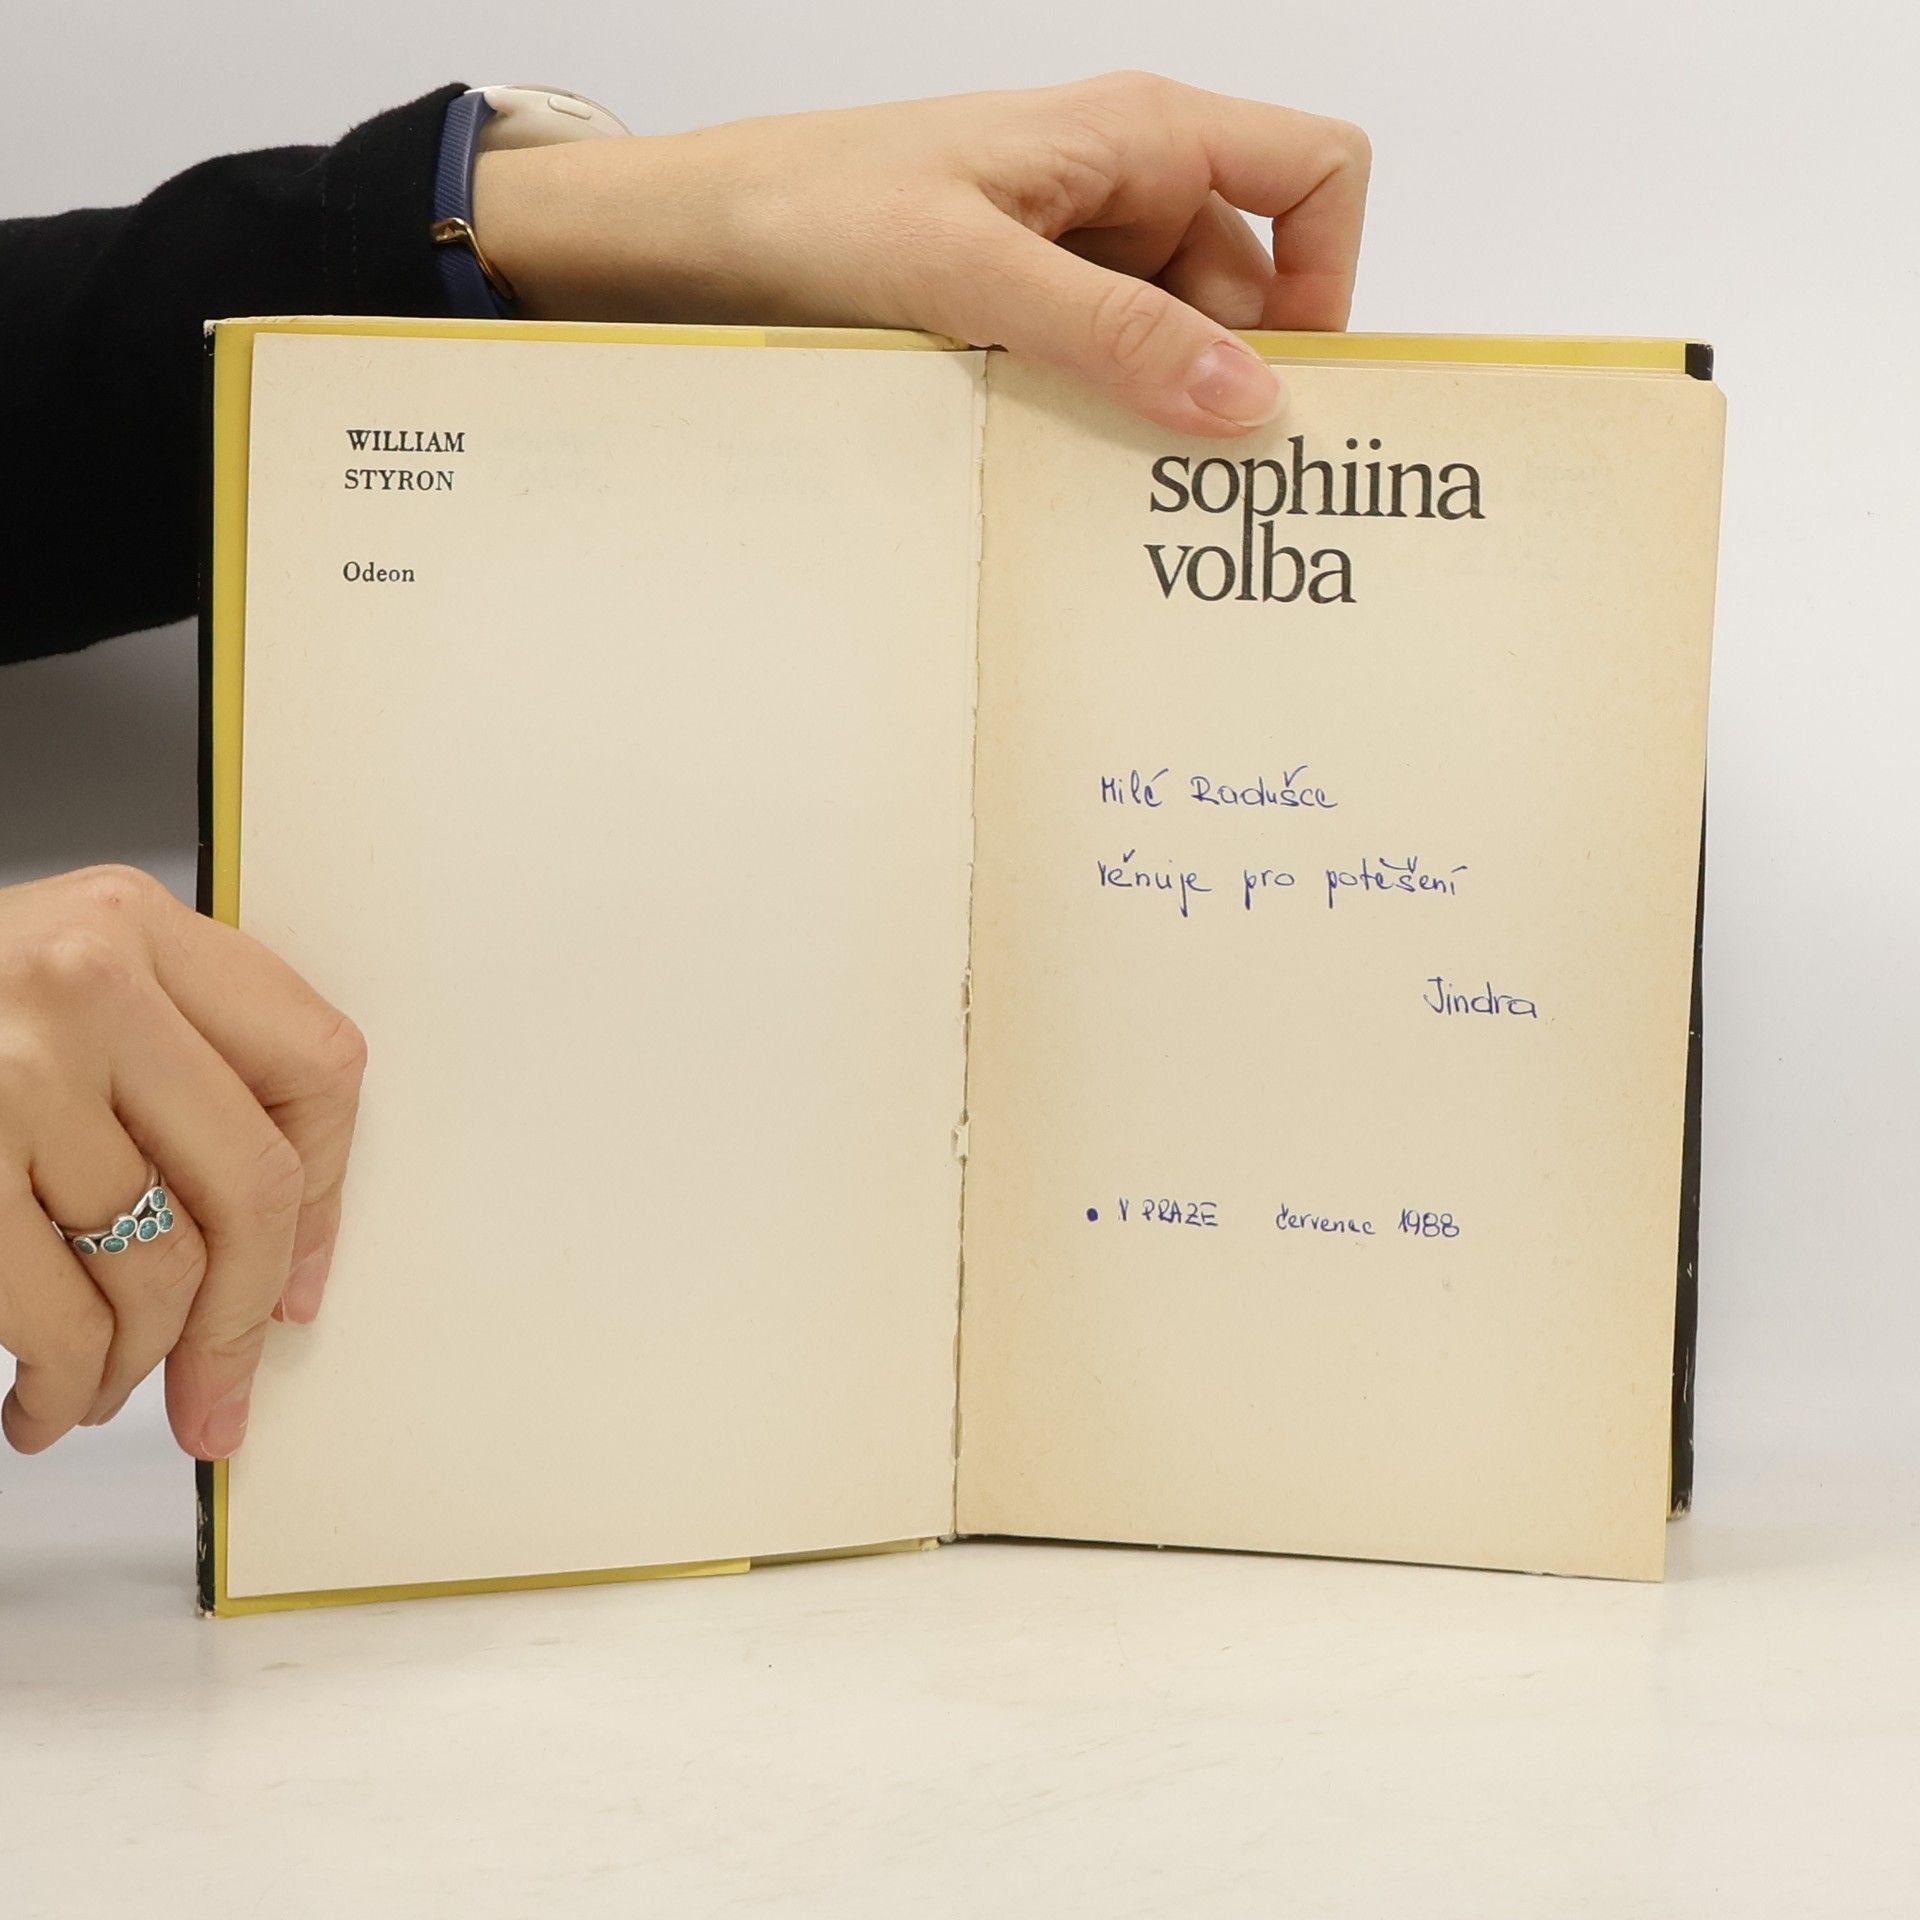 WILLIAM
STYRON
Odeon
sophiina
volba
Milé Radušce
věnuje pro potěšení
Jindra
• V PRAZE červenec 1988